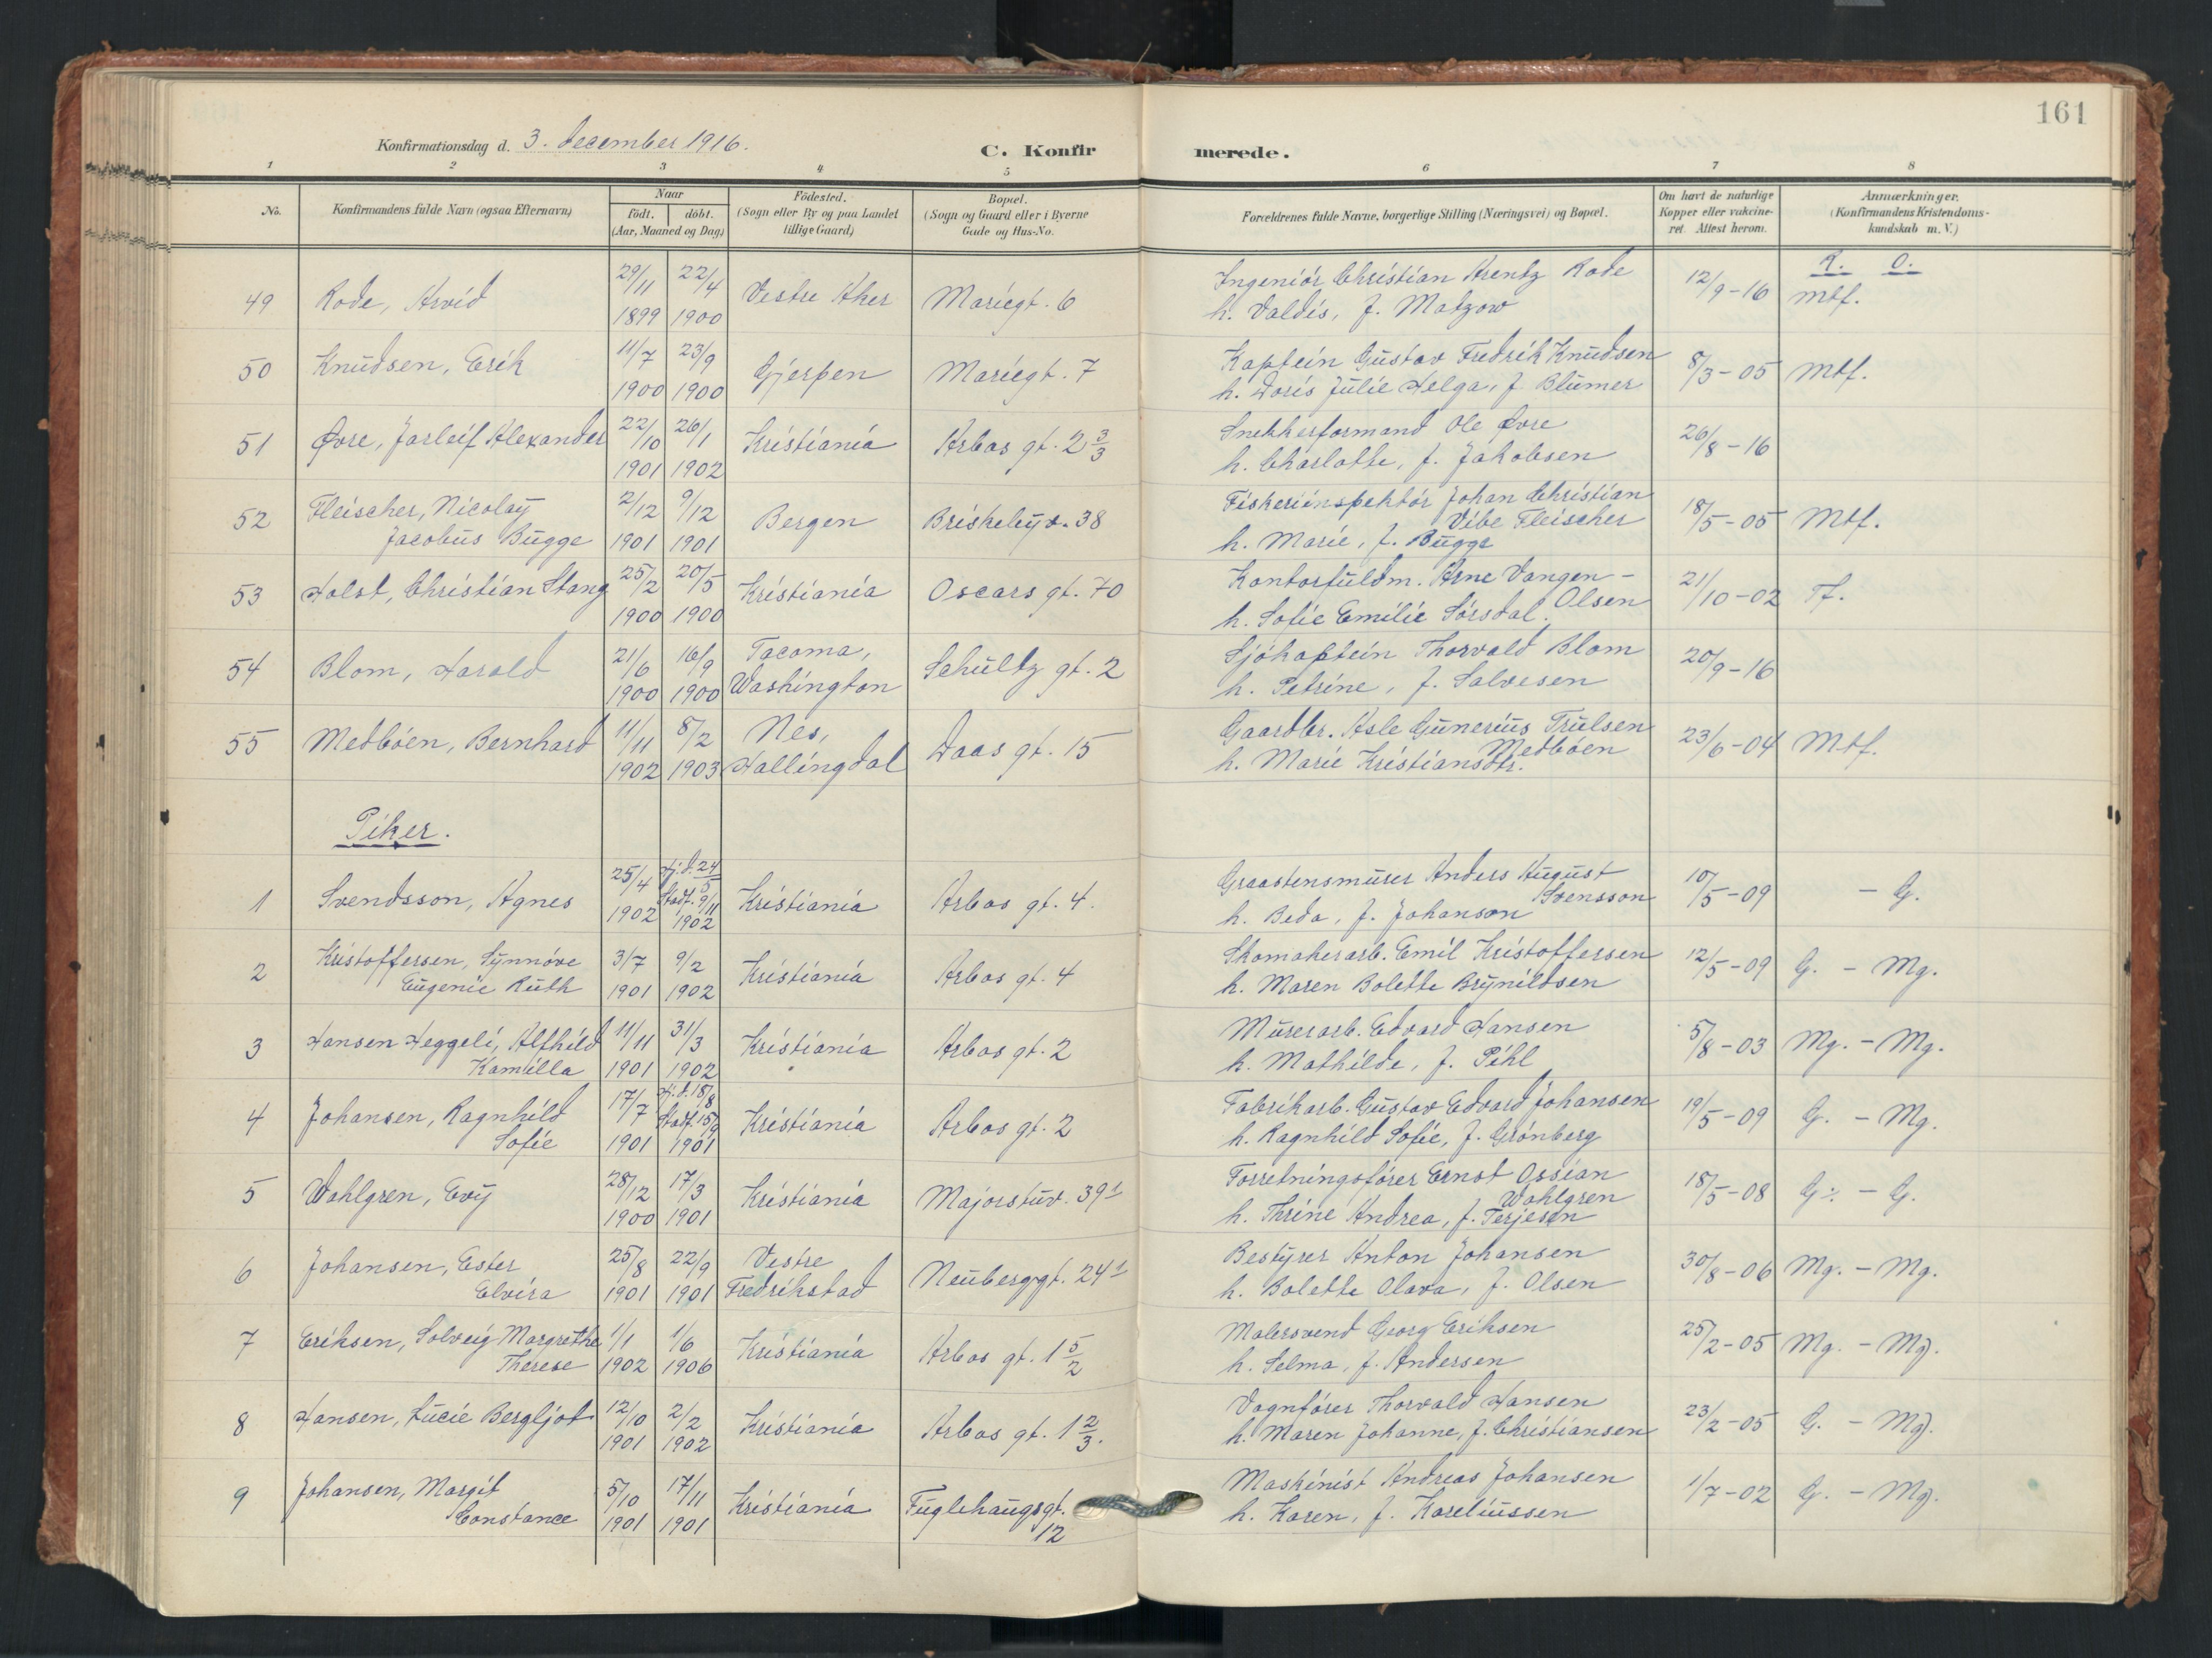 161
Konfirmationsdag d. 3. december 1916.
C. Konfirmerede.
1 2 3 4 5 6 7 8
No. | Konfirmandens fulde Navn (ogsaa Efternavn) | Naar født. døbt. (Aar, Maaned og Dag) | Fødested. (Sogn eller By og paa Landet tillige Gaard) | Bopæl. (Sogn og Gaard eller i Byerne Gade og Hus-No. | Forældrenes fulde Navne, borgerlige Stilling (Næringsvei) og Bopæl. | Om havt de naturlige Kopper eller vakcineret. Attest herom. | Anmærkninger. (Konfirmandens Kristendomskundskab m. V.)
K. O.
49 | Rode, Arvid | 29/11 1899 | 22/4 1900 | Vestre Aker | Mariegt. 6 | Ingeniör Christian Arentz Rode h. Valdis, f. Matzow | 12/9-16 | Mtf.
50 | Knudsen, Erik | 11/7 1900 | 23/9 1900 | Gjerpen | Mariegt. 7 | Kaptein Gustav Fredrik Knudsen h. Doris Julie Helga, f. Blumer | 8/3-05 | Mtf.
51 | Øvre, Jarleif Alexander | 22/10 1901 | 26/1 1902 | Kristiania | Arbos gt. 2 3/3 | Snekkerformand Ole Øvre h. Charlotte, f. Jakobsen | 26/8-16
52 | Fleischer, Nicolay Jacobus Bugge | 2/12 1901 | 9/12 1901 | Bergen | Briskebyv. 38 | Fiskeriinspektör Johan Christian Vibe Fleischer h. Marie, f. Bugge | 18/5-05 | Mtf.
53 | Holst, Christian Stang | 25/2 1900 | 20/5 1900 | Kristiania | Oscars gt. 70 | Kontorfuldm. Arne Vangen-Olsen h. Sofie Emilie Sörsdal. | 21/10-02 | Tf.
54 | Blom, Harald | 21/6 1900 | 16/9 1900 | Tacoma, Washington | Schultz gt. 2 | Sjökaptein Thorvald Blom h. Petrine, f. Salvesen | 20/9-16
55 | Medböen, Bernhard | 11/11 1902 | 8/2 1903 | Nes, Hallingdal | Daas gt. 15 | Gaardbr. Asle Gunerius Trulsen Medböen h. Marie Kristiansdtr. | 23/6-04 | Mtf.
Piker.
1 | Svendsson, Agnes | 25/4 1902 | Hj.d. 24/5 Stadf. 9/11 1902 | Kristiania | Arbos gt. 4. | Graastensmurer Anders August Svensson h. Beda, f. Johanson | 10/5-09 | - G.
2 | Kristoffersen, Synnöve Eugenie Ruth | 3/7 1901 | 9/2 1902 | Kristiania | Arbos gt. 4 | Skomakerarb. Emil Kristoffersen h. Maren Bolette Brynildsen | 12/5-09 | G. - Mg.
3 | Hansen Heggeli, Alfhild Kamilla | 11/11 1901 | 31/3 1902 | Kristiania | Arbos gt. 2 | Murerarb. Edvard Hansen h. Mathilde, f. Pihl | 5/8-03 | Mg. - Mg.
4 | Johansen, Ragnhild Sofie | 17/7 1901 | Hj.d. 18/8 Stadf. 15/9 1901 | Kristiania | Arbos gt. 2 | Fabrikarb. Gustav Edvard Johansen h. Ragnhild Sofie, f. Grönberg | 19/5-09 | G. - Mg.
5 | Wahlgren, Evy | 28/12 1900 | 17/3 1901 | Kristiania | Majorstuv. 39 1 | Forretningsförer Ernst Ossian Wahlgren h. Thrine Andrea, f. Terjesen | 18/5-08 | G÷. - G.
6 | Johansen, Ester Elvira | 25/8 1901 | 22/9 1901 | Vestre Fredrikstad | Neuberggt. 24 1 | Bestyrer Anton Johansen h. Bolette Olava, f. Olsen | 30/8-06 | Mg. - Mg.
7 | Eriksen, Solveig Margrethe Therese | 1/1 1902 | 1/6 1906 | Kristiania | Arbos gt. 1 5/2 | Malersvend Georg Eriksen h. Selma, f. Andersen | 25/2-05 | Mg. - Mg.
8 | Hansen, Lucie Bergljot | 12/10 1901 | 2/2 1902 | Kristiania | Arbos gt. 1 2/3. | Vognförer Thorvald Hansen h. Maren Johanne, f. Christiansen | 23/2-05 | G. - Mg.
9 | Johansen, Margit Constance | 5/10 1901 | 17/11 1901 | Kristiania | Fuglehaugsgt. 12 | Maskinist Andreas Johansen h. Karen, f. Kareliussen | 1/7-02 | G. - Mg.